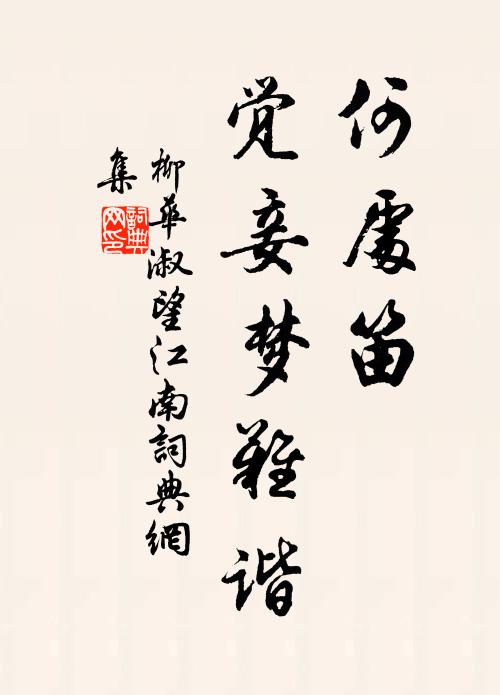 何處笛
觉妾梦難谐
柳華淑望江南詞典網
集
詞典
网印